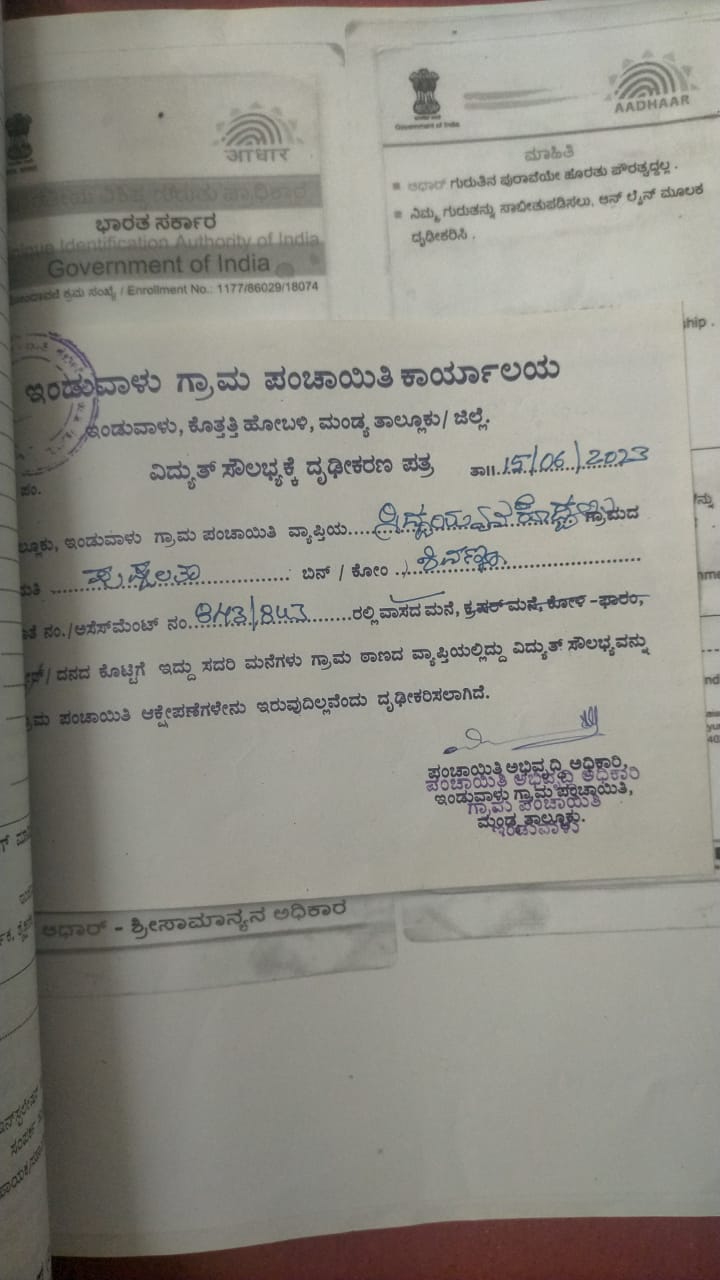 आधार
ಭಾರತ ಸರ್ಕಾರ
Unique Identification Authority of India
Government of India
ಕ್ರಮ ಸಂಖ್ಯೆ / Enrollment No.: 1177/86029/18074
Government of India
AADHAAR
ಮಾಹಿತಿ
ಆಧಾರ್ ಗುರುತಿನ ಪುರಾವೆಯೇ ಹೊರತು ಪೌರತ್ವದ್ದಲ್ಲ .
ನಿಮ್ಮ ಗುರುತನ್ನು ಸಾಬೀತುಪಡಿಸಲು, ಆನ್ ಲೈನ್ ಮೂಲಕ
ದೃಢೀಕರಿಸಿ .
ಇಂಡುವಾಳು ಗ್ರಾಮ ಪಂಚಾಯಿತಿ ಕಾರ್ಯಾಲಯ
ಇಂಡುವಾಳು, ಕೊತ್ತತ್ತಿ ಹೋಬಳಿ, ಮಂಡ್ಯ ತಾಲ್ಲೂಕು/ ಜಿಲ್ಲೆ.
ವಿದ್ಯುತ್ ಸೌಲಭ್ಯಕ್ಕೆ ದೃಢೀಕರಣ ಪತ್ರ ತಾ॥ 15/06/2023
ಇಂಡುವಾಳು ಗ್ರಾಮ ಪಂಚಾಯಿತಿ ವ್ಯಾಪ್ತಿಯ ಗ್ರಾಮದ
ಪುಷ್ಪಲತಾ ಬಿನ್ / ಕೋಂ ಶಿವಣ್ಣ
ನಂ./ಅಸೆಸ್‌ಮೆಂಟ್ ನಂ. 843/843 ರಲ್ಲಿ ವಾಸದ ಮನೆ, ಕ್ರಷರ್ ಮನೆ, ಕೋಳಿ -ಫಾರಂ,
ದನದ ಕೊಟ್ಟಿಗೆ ಇದ್ದು ಸದರಿ ಮನೆಗಳು ಗ್ರಾಮ ಠಾಣದ ವ್ಯಾಪ್ತಿಯಲ್ಲಿದ್ದು ವಿದ್ಯುತ್ ಸೌಲಭ್ಯವನ್ನು
ಪಂಚಾಯಿತಿ ಆಕ್ಷೇಪಣೆಗಳೇನು ಇರುವುದಿಲ್ಲವೆಂದು ದೃಢೀಕರಿಸಲಾಗಿದೆ.
ಪಂಚಾಯಿತಿ ಅಭಿವೃದ್ಧಿ ಅಧಿಕಾರಿ,
ಪಂಚಾಯಿತಿ ಅಭಿವೃದ್ಧಿ ಅಧಿಕಾರಿ
ಇಂಡುವಾಳು ಗ್ರಾಮ ಪಂಚಾಯಿತಿ,
ಗ್ರಾಮ ಪಂಚಾಯಿತಿ
ಮಂಡ್ಯ ತಾಲ್ಲೂಕು.
ಇಂಡುವಾಳು
ಆಧಾರ್ - ಶ್ರೀಸಾಮಾನ್ಯನ ಅಧಿಕಾರ